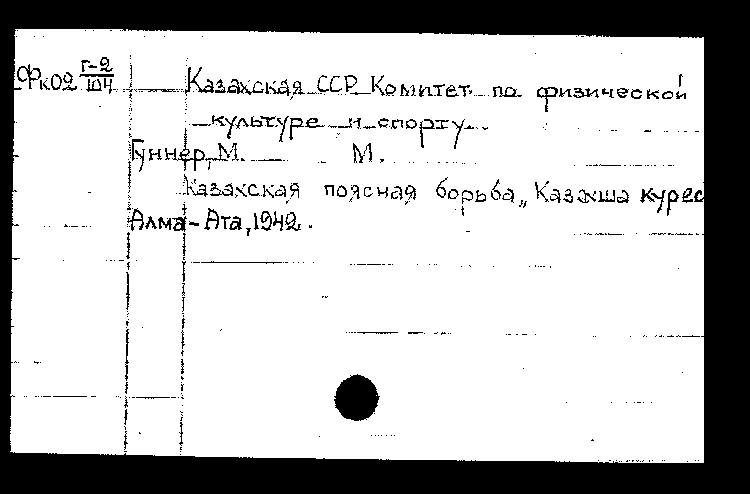 ФкО2 Г-2/104 Казахская ССР Комитет по физической
культуре и спорту.
Гуннер, М. М.
Казахская поясная борьба „Казакша курес
Алма-Ата, 1942.